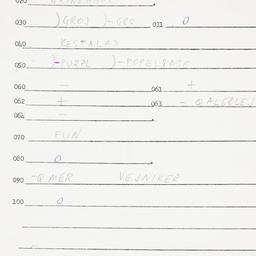 020
030 )GROJ )-GRO 031 0
040 KESTALAX
050 )-PURPL )-POPELBATE
060 - 061 +
062 + 063 - QALERLEJ
064 -
070 FUN
080 0
090 -QMER VEJNIKER
100 0